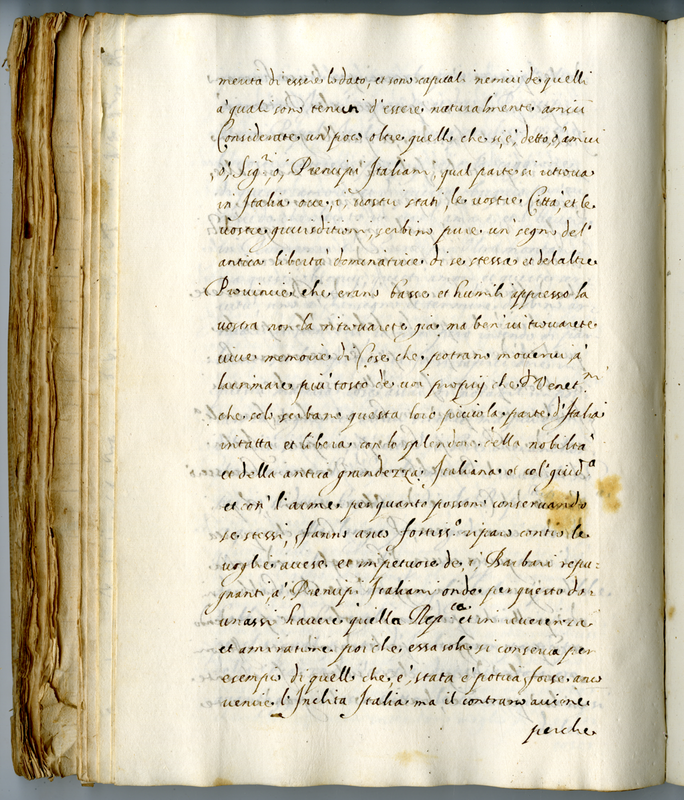 merita di essere lodato, et sono capitali nemici de quelli
à quali sono tenuti d'essere naturalmente amici
Considerate un' poco oltre quello che si, è, detto, ò, amici
ò, Sig.ri ò, Prencipi Italiani, qual parte si ritrova
in Italia ove, i, vostri stati, le vostre Città, et le
vostre giurisditioni, serbino pure un' segno del'
antica libertà dominatrice di se stessa et del altre
Provincie che erano basse et humili appresso la
vostra non la ritrovarete già, ma ben' vi trovarete
vive memorie di Cose che potrano movervi, à
lacrimare più tosto de voi proprij che d Venet.ni
che solo serbano questa loro picciola parte d'Italia
intatta et libera con lo splendore della nobiltà
et della antica grandezza Italiana et col'
et con' l'arme per quanto possono conservando
se stessi, fanno anco fortiss.o riparo contro le
voglie accese et impetuose de, i, Barbari repu=
gnanti, à, Prencipi Italiani onde per questo do=
unassi havere quella Rep.ca et in riverenza
et amiratione poi che essa sola si conserva per
esempio di quello che, è, stata è potria forse anco
venire l'Inclita Italia ma il contrario aviene
perche